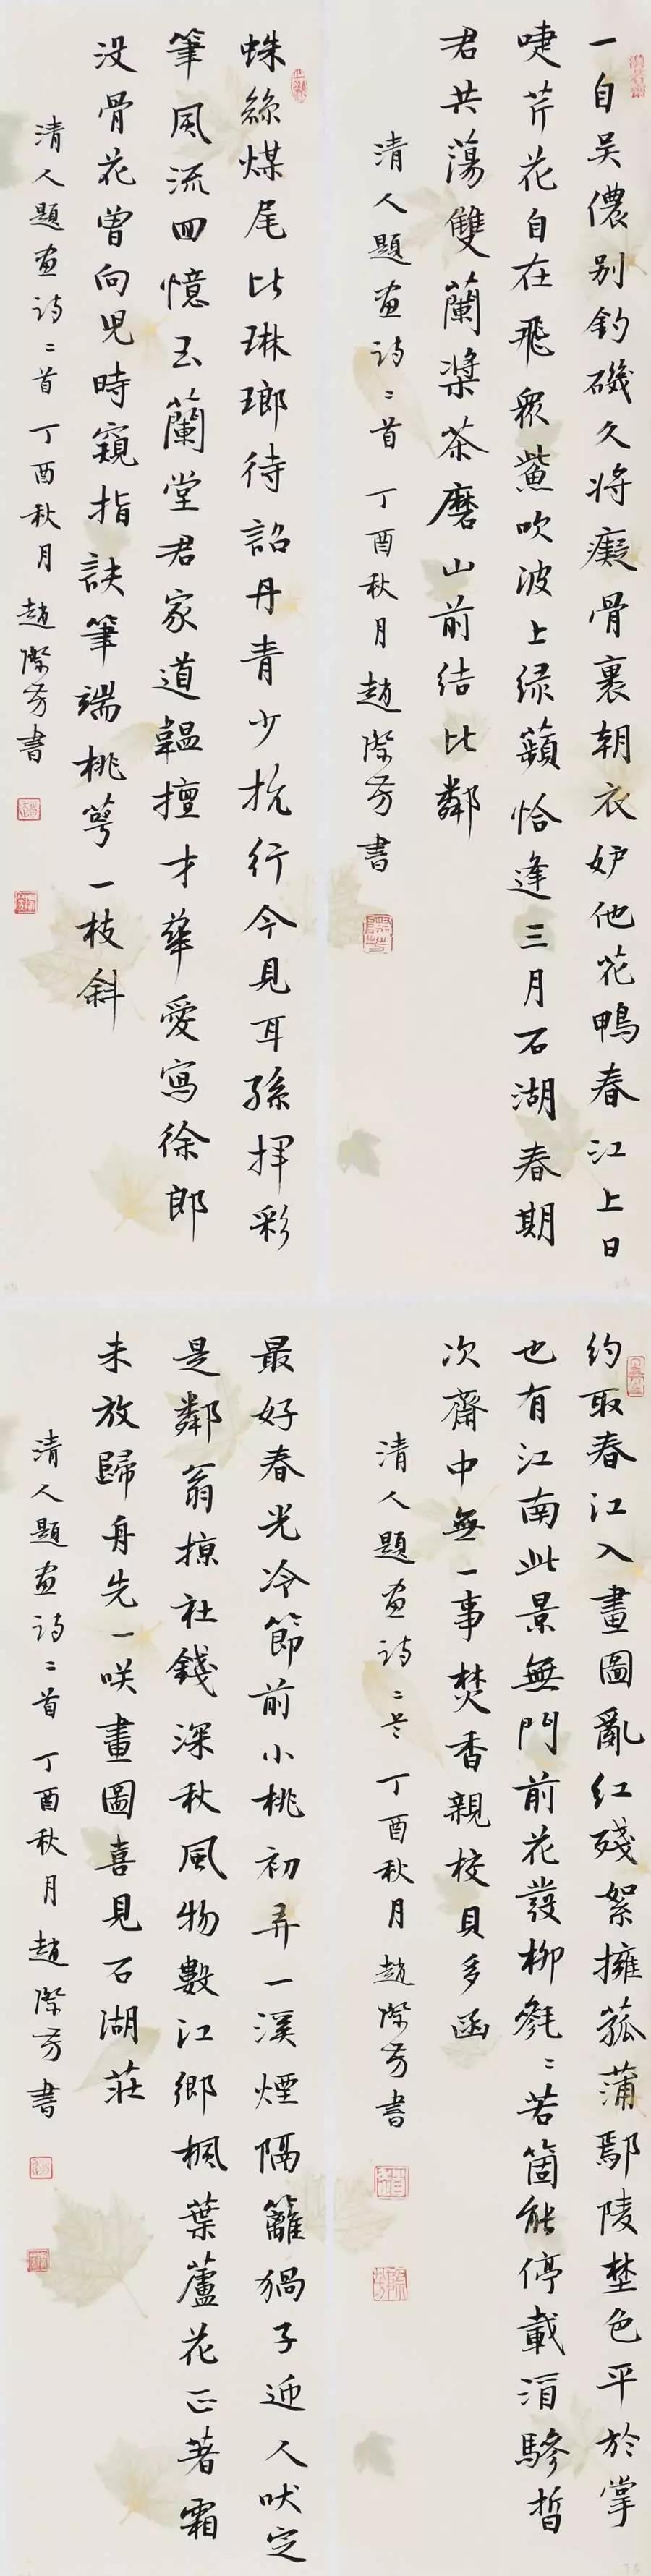 一自吴儂别釣磯久将癡骨裹朝衣妒他花鴨春江上日
唼芹花自在飛衆鯊吹波上绿蘋恰逢三月石湖春期
君共蕩雙蘭槳茶磨山前结比鄰
清人題画詩二首 丁酉秋月 趙際芳書
蛛絲煤尾比琳瑯待詔丹青少抗行今見耳孫揮彩
筆風流回憶玉蘭堂君家道韞擅才華愛寫徐郎
没骨花曾向兒時窺指訣筆端桃萼一枝斜
清人題画詩二首 丁酉秋月 趙際芳書
约取春江入畫圖亂红殘絮擁菰蒲鄢陵埜色平於掌
也有江南此景無門前花發柳毿二若箇能停載酒驂皙
次齋中無一事焚香親校貝多函
清人題画詩二首 丁酉秋月 趙際芳書
最好春光冷節前小桃初弄一溪煙隔籬猧子迎人吠定
是鄰翁掠社錢深秋風物數江鄉楓葉蘆花正著霜
未放歸舟先一咲畫圖喜見石湖莊
清人題画詩二首 丁酉秋月 趙際芳書